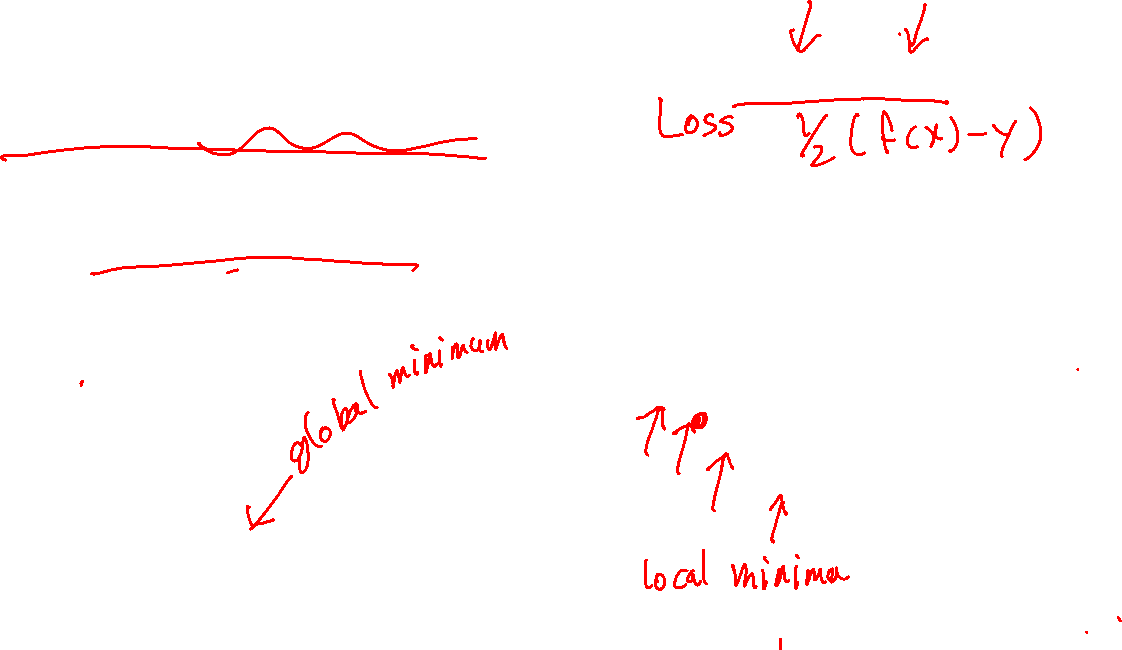 Loss ½ (f(x) - y)
global minimum
local minima